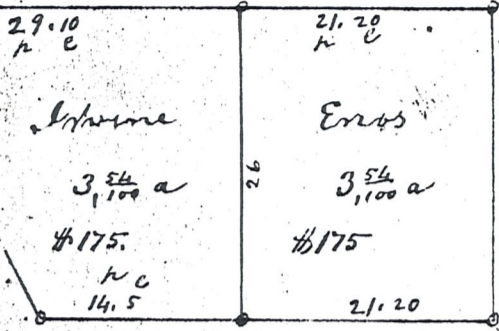 29.10
p c
3, 54/100 a
$175.
p c
14.5
26
21.20
p c
Enos
3, 54/100 a
$175
21.20